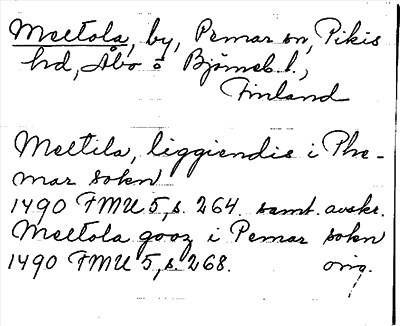 Meltola, by, Pemar sn, Pikis
hd, Åbo o Björneb. l.,
Finland
Meltila, liggiendis i Phe-
mar sokn
1490 FMU 5, s. 264. samt. avskr.
Meltola gooz i Pemar sokn
1490 FMU 5, s. 268. orig.